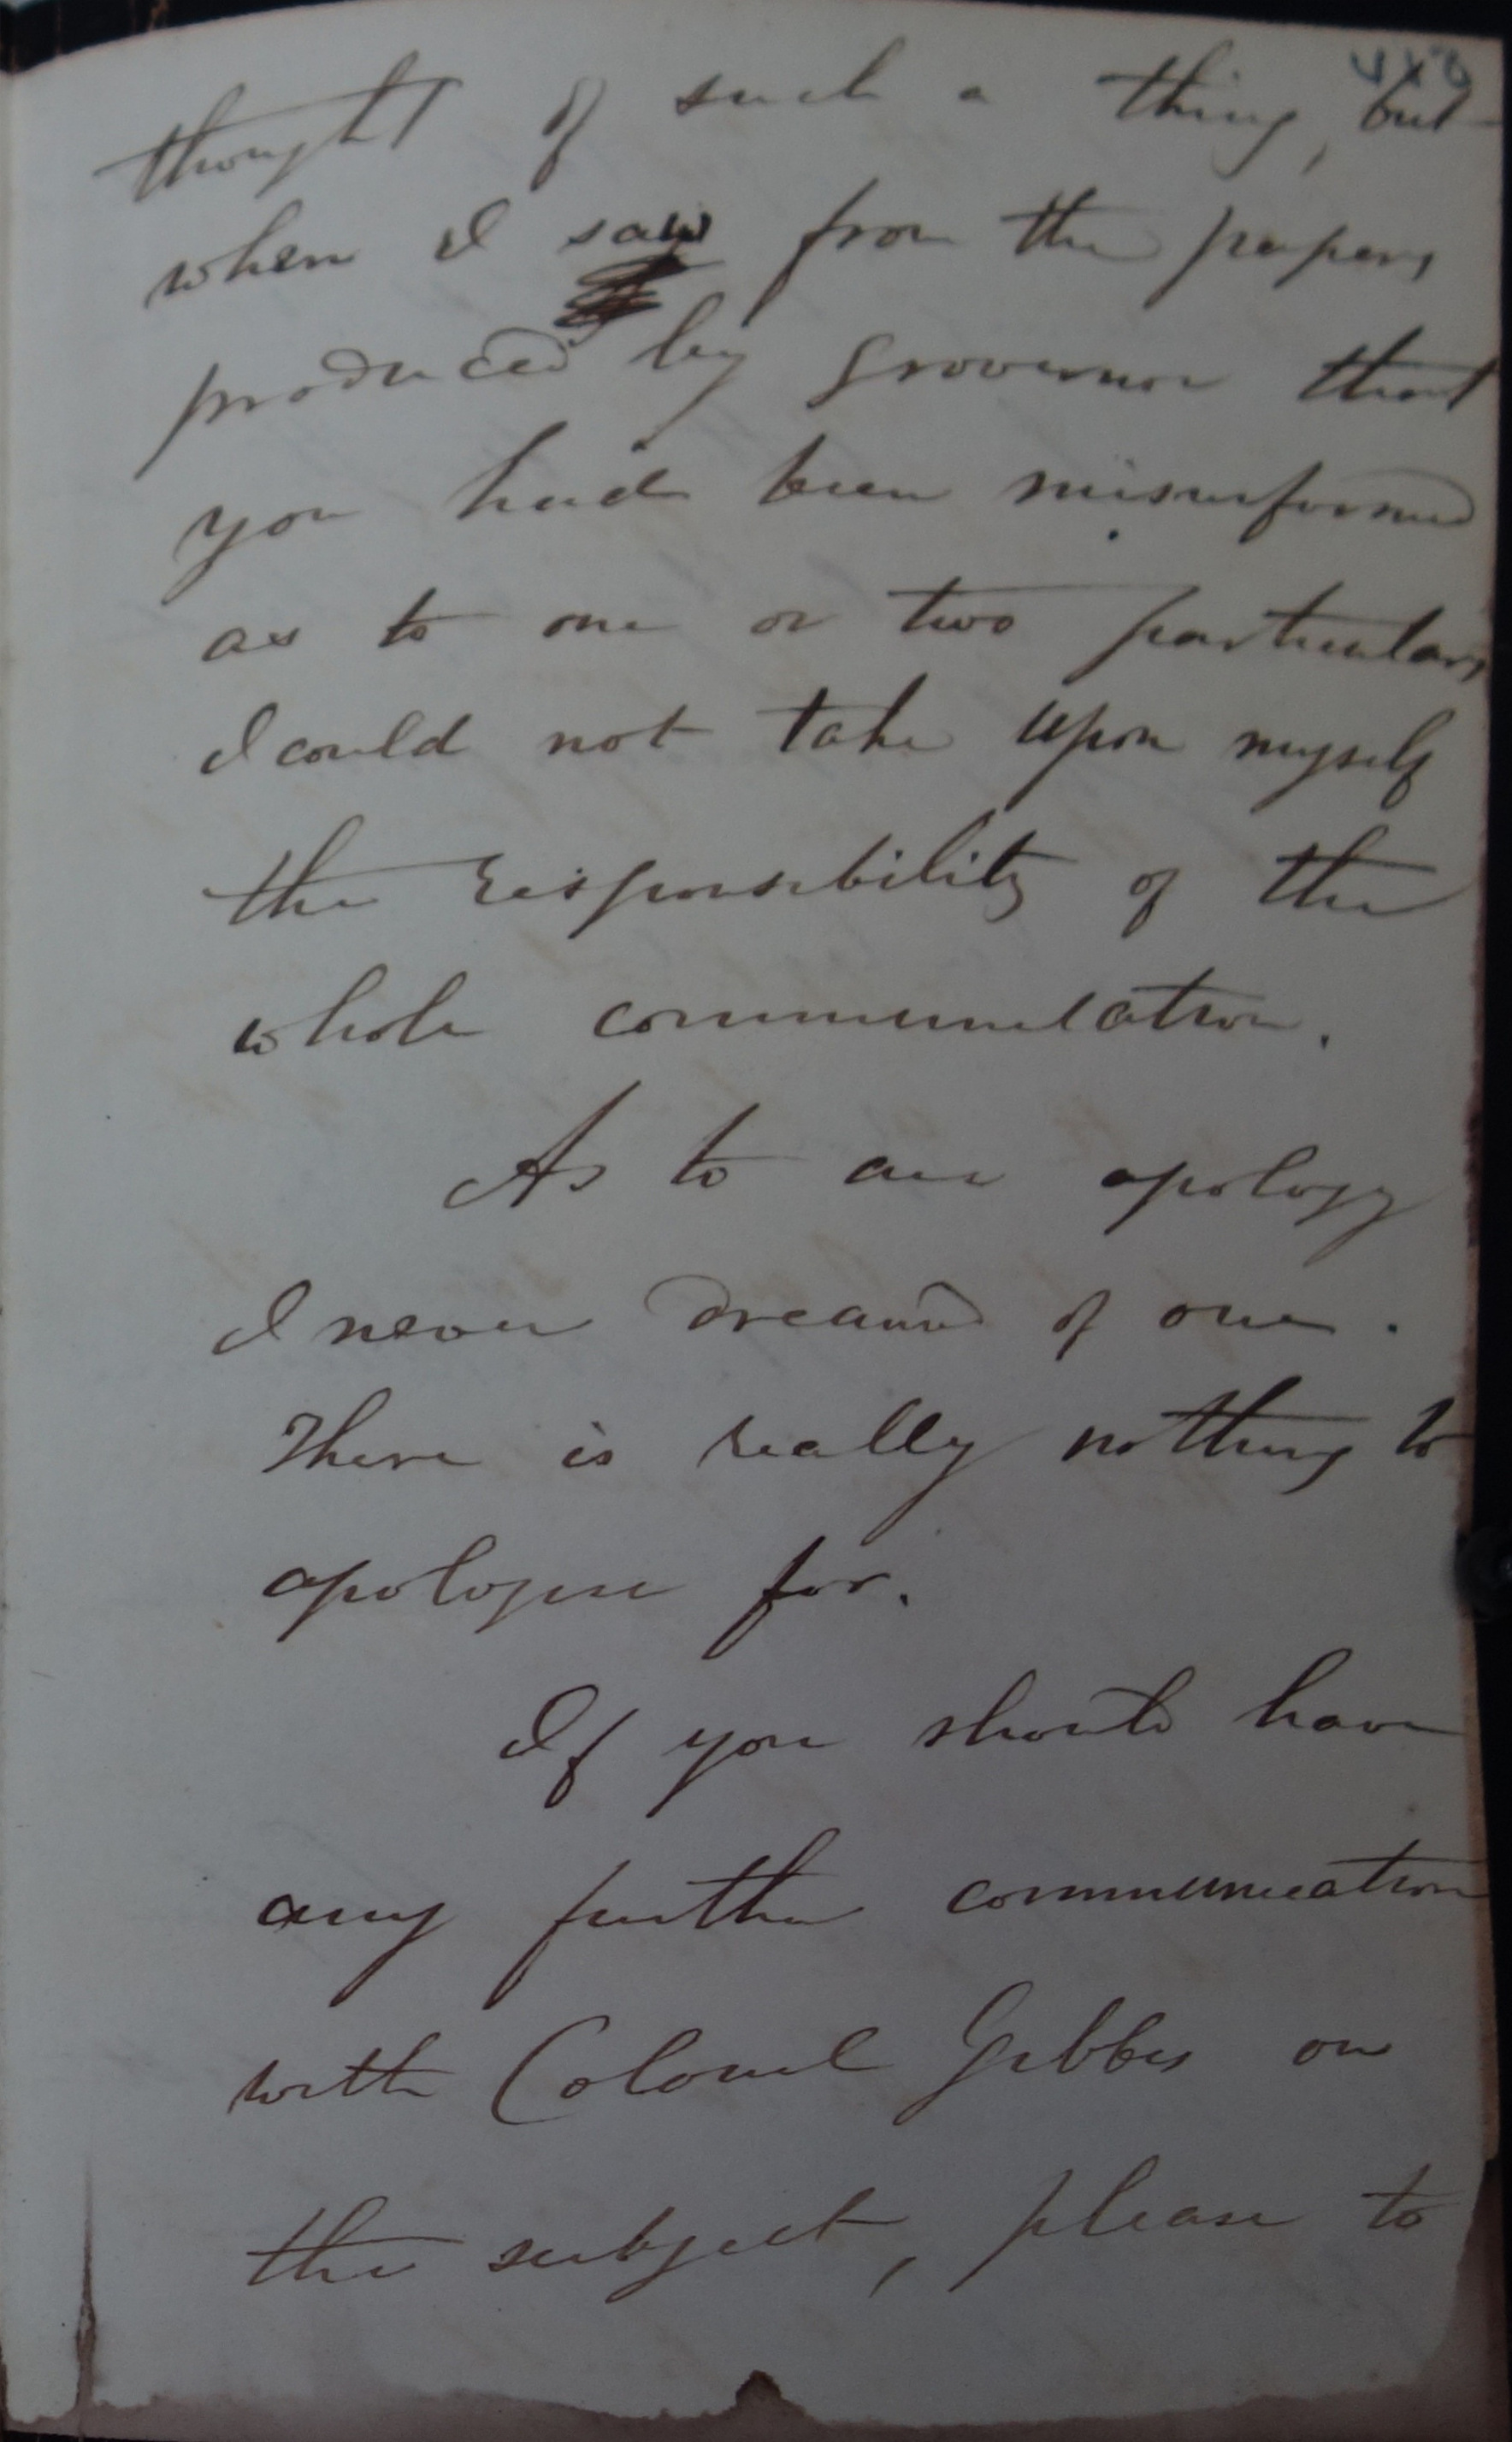 thought of such a thing, but
when I saw from the papers
produced by Grovernor that
you had been misinformed
as to one or two particulars
I could not take upon myself
the responsibility of the
whole communication.
As to an apology
I never dreamd of one.
There is really nothing to
apologise for.
If you should have
any further communication
with Colonel Gibbes on
the subject, please to